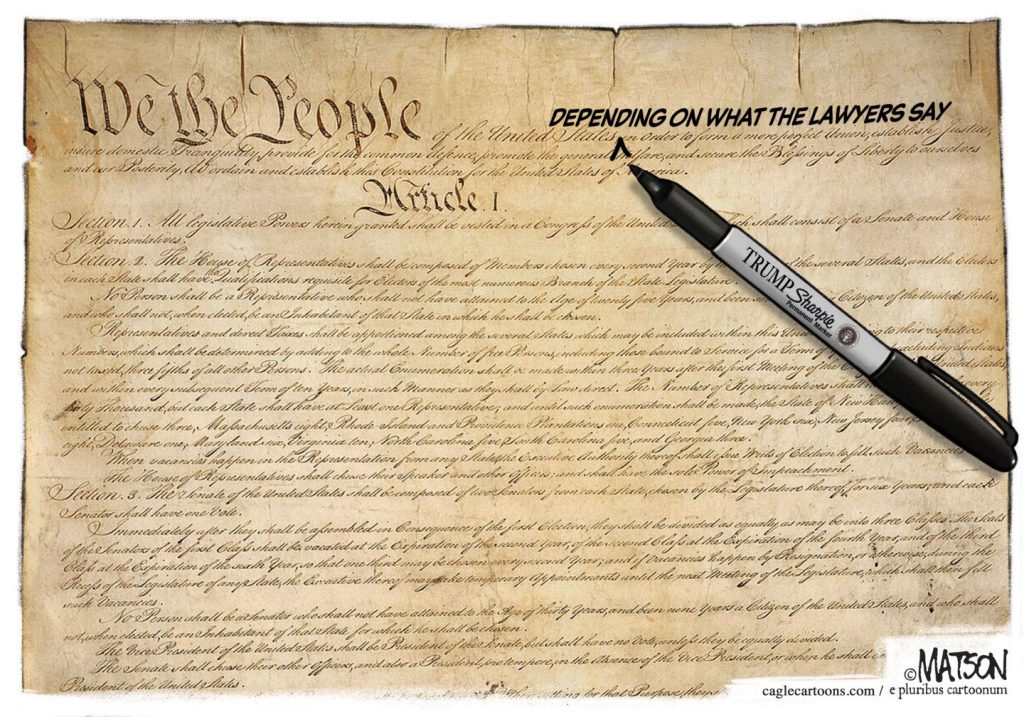 DEPENDING ON WHAT THE LAWYERS SAY
We the People of the United States in order to form a more perfect Union, establish Justice,
insure domestic Tranquility, provide for the common defence, promote the general Welfare, and secure the Blessings of Liberty to ourselves
and our Posterity, do ordain and establish this Constitution for the United States of America.
Article. I.
Section. 1. All legislative Powers herein granted shall be vested in a Congress of the United which shall consist of a Senate and House
of Representatives.
Section. 2. The House of Representatives shall be composed of Members chosen every second Year by the several States, and the Electors
in each State shall have Qualifications requisite for Electors of the most numerous Branch of the State Legislature
No Person shall be a Representative who shall not have attained to the Age of twenty five Years, and been Citizen of the United States,
and who shall not, when elected, be an Inhabitant of that State in which he shall be chosen.
TRUMP
Sharpie
Permanent Marker
Representatives and direct Taxes shall be apportioned among the several States which may be included within this to their respective
Numbers, which shall be determined by adding to the whole Number of free Persons, including those bound to Service for a Term of excluding Indians
not taxed, three fifths of all other Persons. The actual Enumeration shall be made within three Years after the first Meeting of the United States,
and within every subsequent Term of ten Years, in such Manner as they shall by Law direct. The Number of Representatives shall every
thirty Thousand, but each State shall have at Least one Representative; and until such enumeration shall be made, the State of New
entitled to chuse three, Massachusetts eight, Rhode Island and Providence Plantations one, Connecticut five, New York six, New Jersey four,
eight, Delaware one, Maryland six, Virginia ten, North Carolina five, South Carolina five, and Georgia three.
When vacancies happen in the Representation from any State, the Executive Authority thereof shall issue Writs of Election to fill such Vacancies
The House of Representatives shall chuse their Speaker and other Officers; and shall have the sole Power of Impeachment.
Section. 3. The Senate of the United States shall be composed of two Senators from each State, chosen by the Legislature thereof, for six Years; and each
Senator shall have one Vote.
Immediately after they shall be assembled in Consequence of the first Election, they shall be divided as equally as may be into three Classes. The Seats
of the Senators of the first Class shall be vacated at the Expiration of the second Year, of the second Class at the Expiration of the fourth Year, and of the third
Class at the Expiration of the sixth Year, so that one third may be chosen every second Year; and if Vacancies happen by Resignation, or otherwise, during the
Recess of the Legislature of any State, the Executive thereof may make temporary Appointments until the next Meeting of the Legislature, which shall then fill
such Vacancies.
No Person shall be a Senator who shall not have attained to the Age of thirty Years, and been nine Years a Citizen of the United States, and who shall
not, when elected, be an Inhabitant of that State for which he shall be chosen.
The Vice President of the United States shall be President of the Senate, but shall have no Vote, unless they be equally divided.
The Senate shall chuse their other Officers, and also a President pro tempore, in the Absence of the Vice President, or when he shall
President of the United States.
for that Purpose, they
© MATSON
caglecartoons.com / e pluribus cartoonum